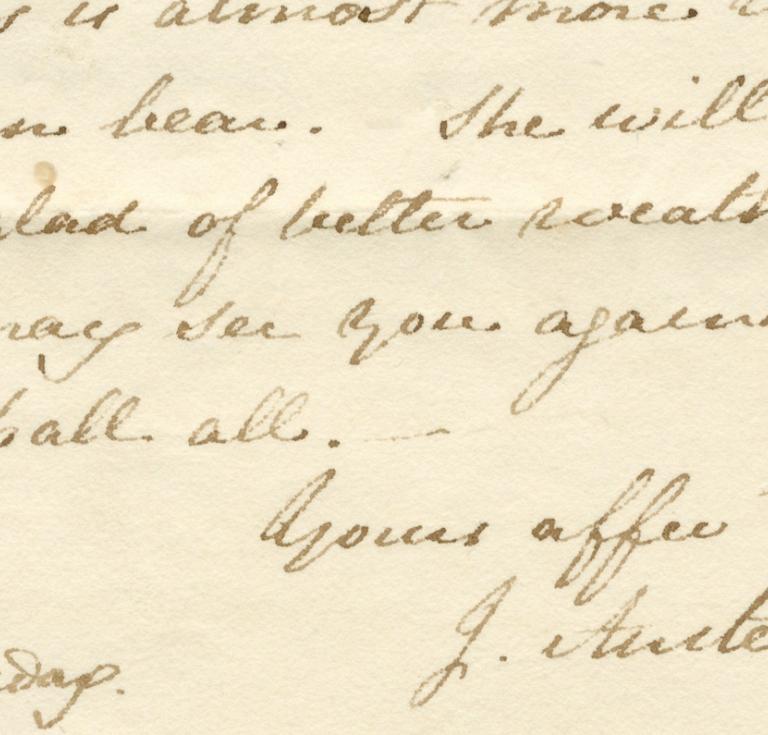 is almost more
bear. She will
glad of better weath
may see you again
shall all. —
Yours affec
J. Auste
day.